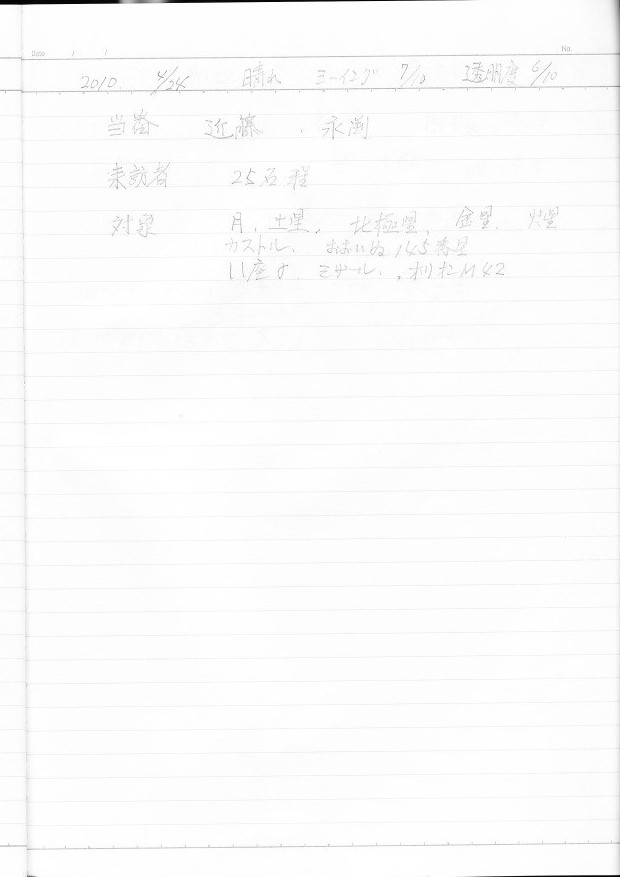 Date / / No.
2010. 4/24 晴れ シーイング 7/10 透明度 6/10
当番 近藤 . 永渕
来訪者 25名程
対象 月、土星、北極星、金星、火星
カストル、おおいぬ145番星
しし座γ ミザール、オリオンM42